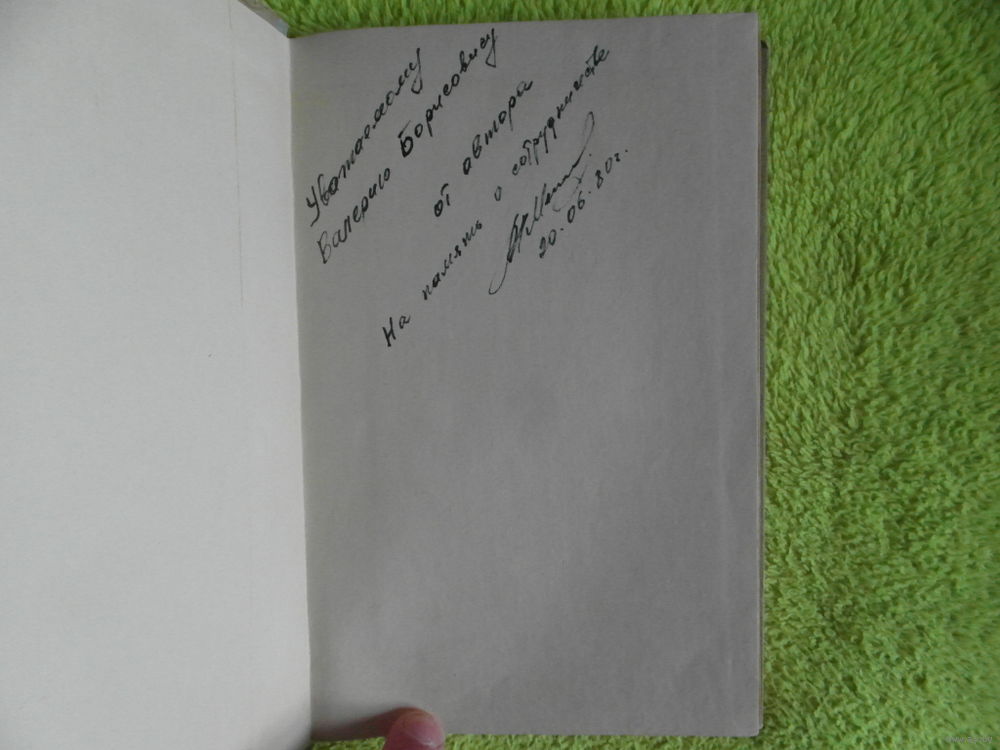 Уважаемому
Валерию Борисовичу
от автора
На память о сотрудничестве
20.06.80г.